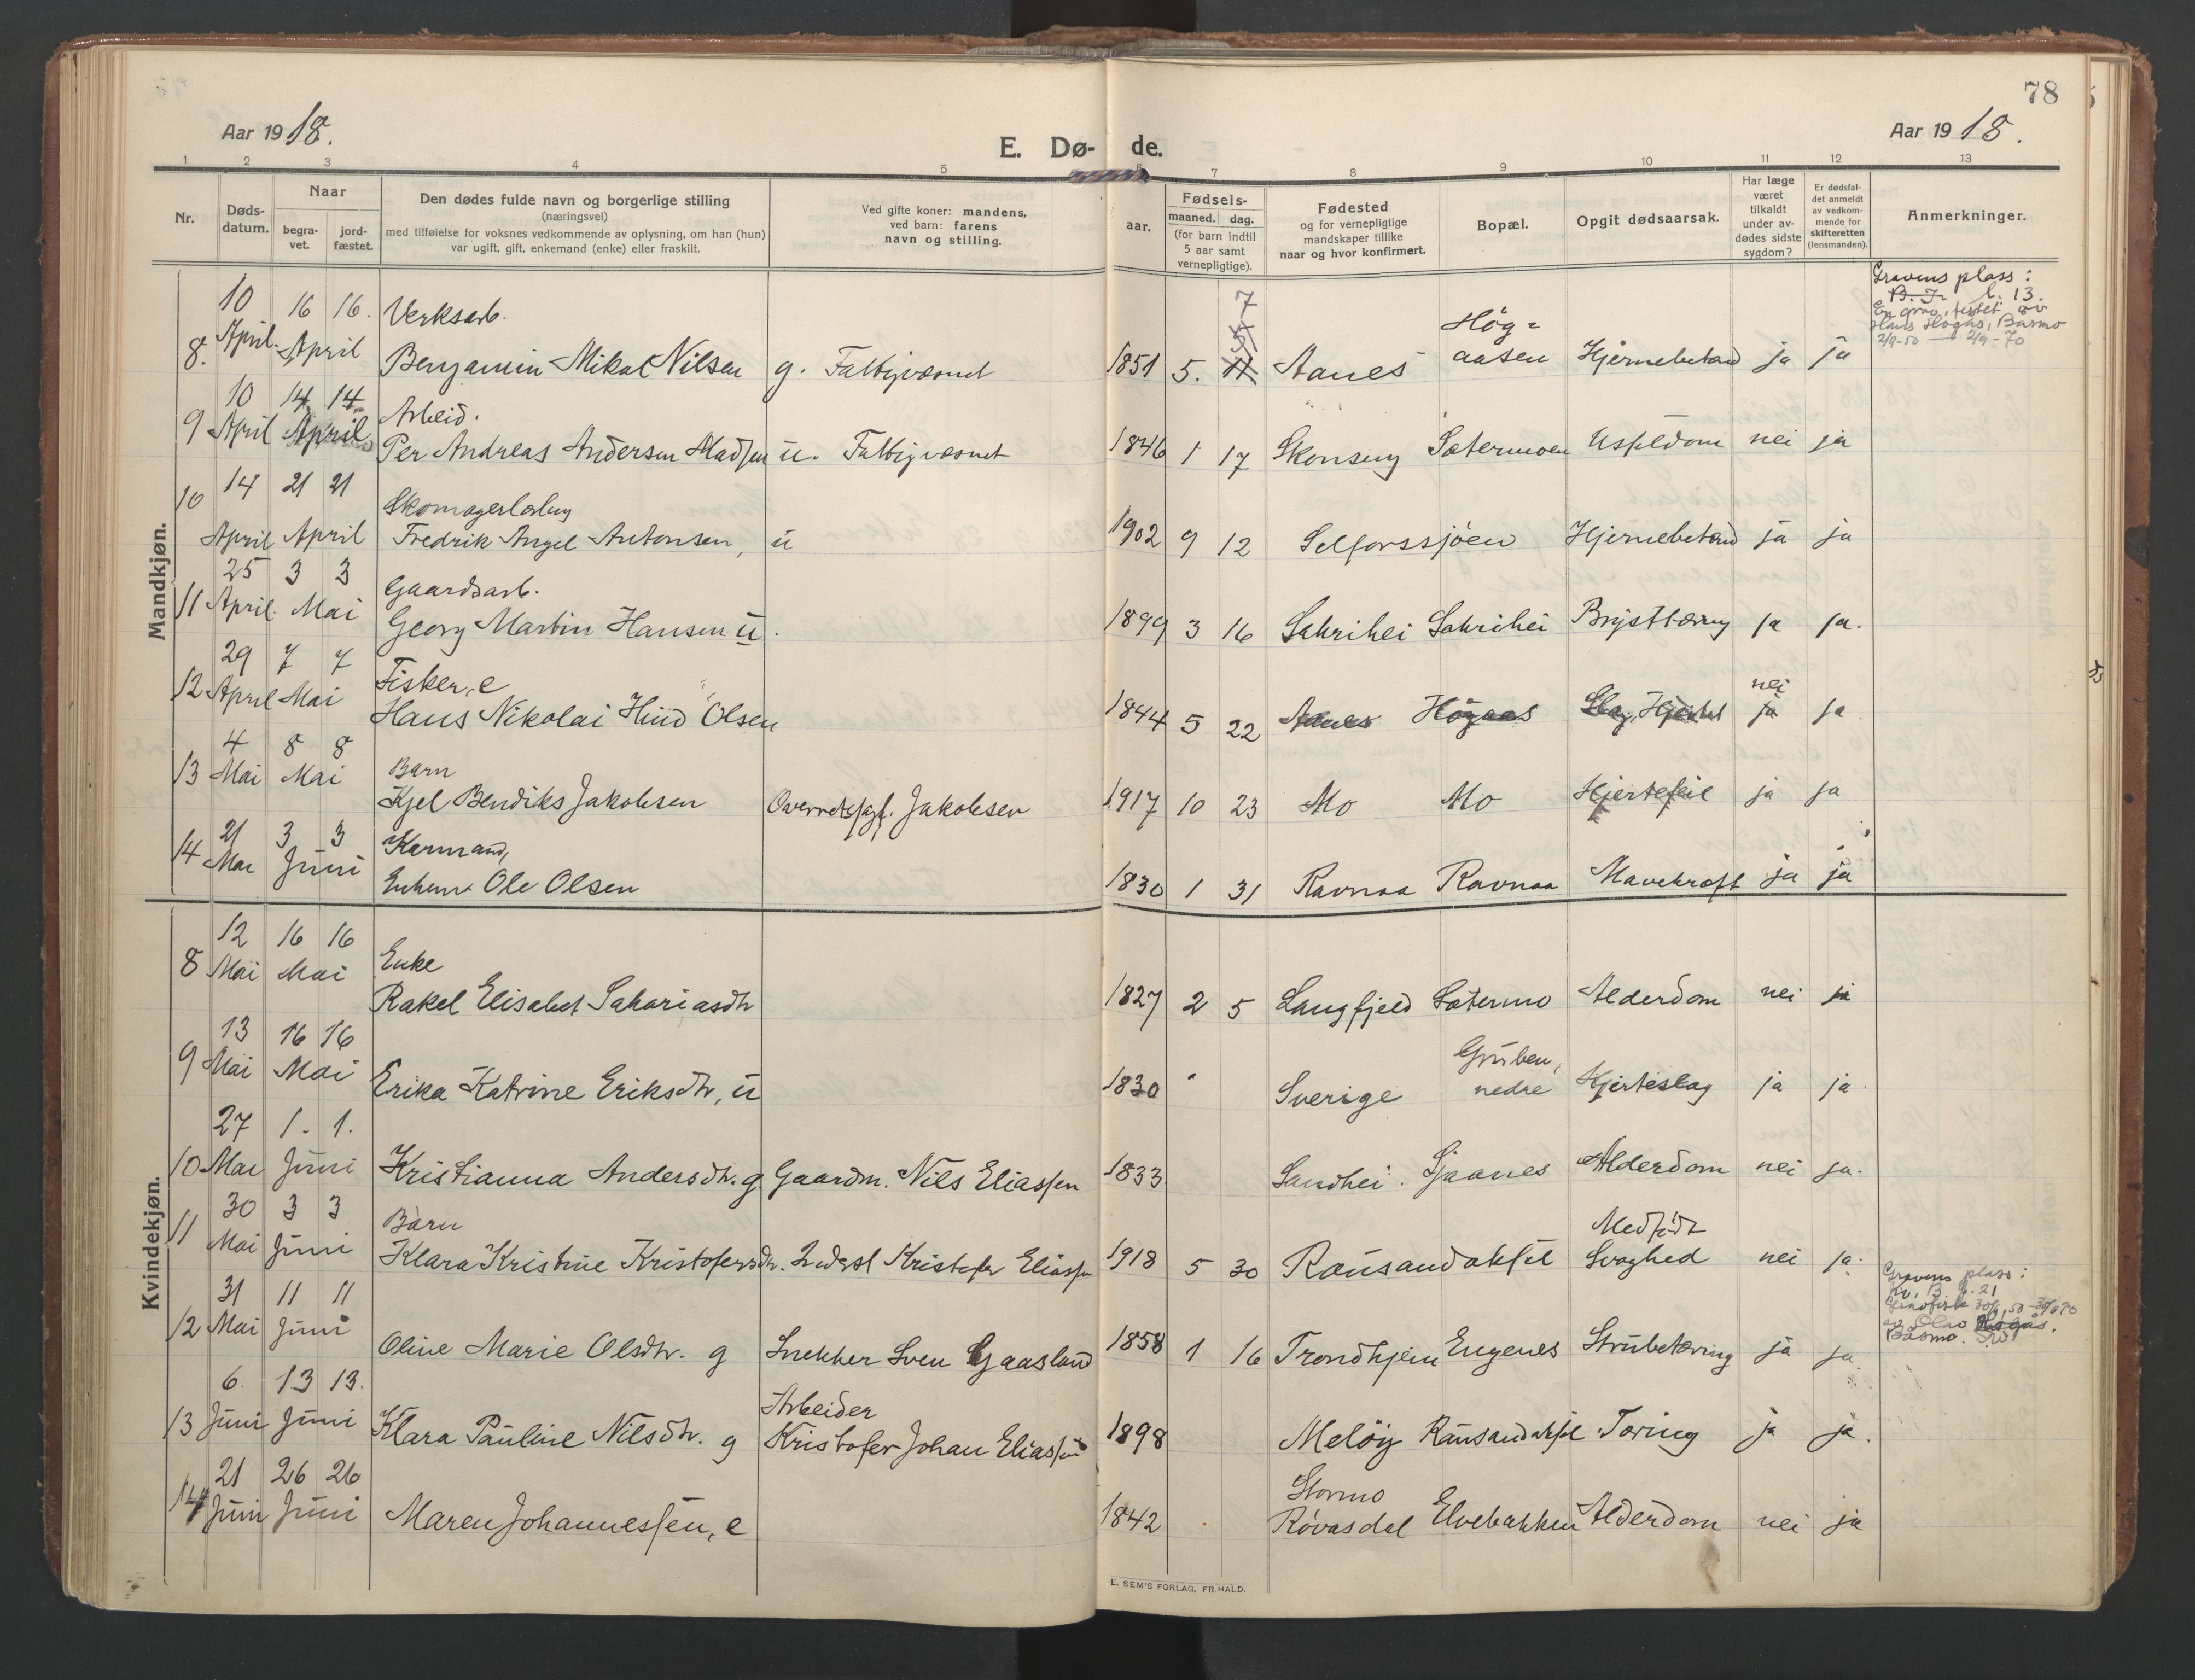 78
Aar 1918.
E. Dø- de.
Aar 1918.
1 2 3 4 5 6 7 8 9 10 11 12 13
Nr.
Døds-
datum.
Naar
begra-
vet.
jord-
fæstet.
Den dødes fulde navn og borgerlige stilling
(næringsvei)
med tilføielse for voksnes vedkommende av oplysning, om han (hun)
var ugift, gift, enkemand (enke) eller fraskilt.
Ved gifte koner: mandens,
ved barn: farens
navn og stilling.
Fødsels-
aar.
maaned. dag.
(for barn indtil
5 aar samt
vernepligtige).
Fødested
og for vernepligtige
mandskaper tillike
naar og hvor konfirmert.
Bopæl.
Opgit dødsaarsak.
Har læge
været
tilkaldt
under av-
dødes sidste
sygdom?
Er dødsfal-
det anmeldt
av vedkom-
mende for
skifteretten
(lensmanden).
Anmerkninger.
Mandkjøn.
10 16 16. Verksarb. 7 Høg= Gravens plass:
8. April. April Benjamin Mikal Nilsen g. Fattigvæsnet 1851 5. 11 Aanes aasen Hjernebetænd ja ja
l. 13.
En grav, festet av
Hans Høgås, Båsmo
2/9-50 — 2/9-70
10 14 14 Arbeid.
9 April April Per Andreas Andersen Madsen u. Fattigvæsnet 1846 1 17 Skonseng Sætermoen nei ja
14 21 21 Skomagerlærling
10 April April Fredrik Angel Antonsen, u 1902 9 12 Selforssjøen Hjernebetænd ja ja
25 3 3 Gaardsarb.
11 April. Mai Georg Martin Hansen u. 1899 3 16 Sakrihei Sakrihei Brysttæring ja ja.
29 7 7 Fisker, e nei
12 April Mai Hans Nikolai Hind Olsen 1844 5 22 Aanes Høgaas ja ja
4 8 8 Barn
13 Mai Mai Kjel Bendiks Jakobsen Overretssagf. Jakobsen 1917 10 23 Mo Mo Hjertefeil ja ja
21 3 3 Karmand,
14 Mai Juni Enkem. Ole Olsen 1830 1 31 Ravnaa Ravnaa Mavekræft ja ja
Kvindekjøn.
12 16 16 Enke
8 Mai Mai Rakel Elisabet Sakariasdtr 1827 2 5 Langfjeld Sætermo Alderdom nei ja
13 16 16 Gruben,
9 Mai Mai Erika Katrine Eriksdtr, u 1830 Sverige nedre Hjerteslag ja ja
27 1. 1.
10 Mai Juni Kristianna Andersdtr. g. Gaardm. Nils Eliassen 1833 Sandhei. Sjaanes Alderdom nei ja.
30 3 3 Barn Medfødt
11 Mai Juni Klara Kristine Kristofersdtr. Inderst Kristofer Eliassen 1918 5 30 Rausandaksel Svaghed nei ja.
31 11 11 Gravens plass:
12 Mai Juni Oline Marie Olsdtr. g Snekker Sven Gaasland 1858 1 16 Trondhjem Engenes Strubetæring ja ja
Kv. B. l. 21
av Olav Høgås,
Båsmo.
6. 13 13. Arbeider
13 Juni Juni Klara Pauline Nilsdtr. g Kristofer Johan Eliassen 1898 Meløy Rausandaksel Tæring ja ja.
21 26 26 Stormo
14 Juni Juni Maren Johannessen, e 1842 Røvasdal Elvebakken Alderdom nei ja
E. SEM'S FORLAG, FR.HALD.